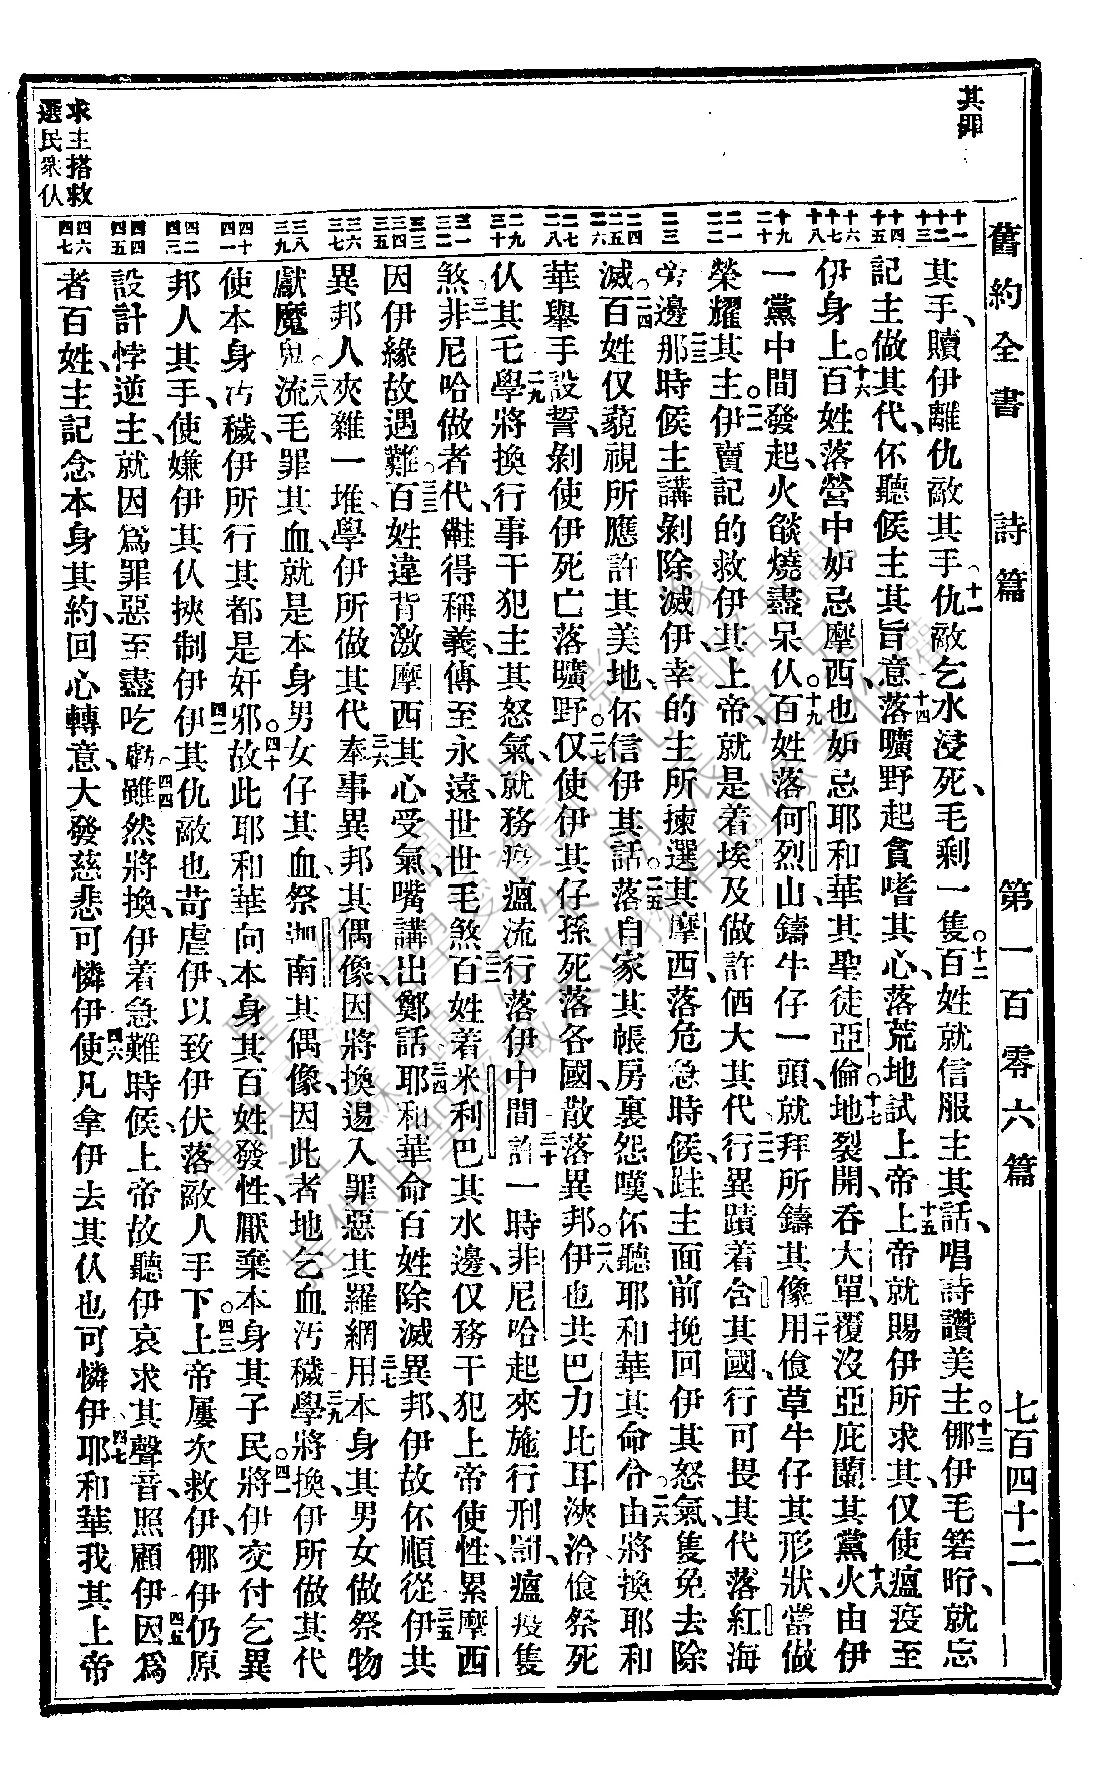 舊約全書　詩篇　第一百零六篇　七百四十二
其手、贖伊離仇敵其手、十一仇敵乞水浸死、毛剩一隻。十二百姓就信服主其話、唱詩讚美主。十三倻伊毛箬𣍐、就忘
記主做其代、伓聽候主其旨意、十四落曠野起貪嗜其心、落荒地試上帝、十五上帝就賜伊所求其、仅使瘟疫至
伊身上。十六百姓落營中妒忌摩西、也妒忌耶和華其聖徒亞倫。十七地裂開、吞大單、覆沒亞庇蘭其黨、十八火由伊
一黨中間發起、火燄燒盡呆仈。十九百姓落何烈山鑄牛仔一頭、就拜所鑄其像、二十用食草牛仔其形狀、當做
榮耀其主。二一伊賣記的救伊其上帝、就是着埃及做許大其代、二二行異蹟着含其國、行可畏其代落紅海
旁邊。二三那時候主講剝除滅伊、幸的主所揀選其摩西、落危急時候、跬主面前挽回伊其怒氣、隻免去除
滅。二四百姓仅藐視所應許其美地、伓信伊其話。二五落自家其帳房裏怨嘆、伓聽耶和華其命令。二六由將換耶和
華舉手設誓、剝使伊死亡落曠野。二七仅使伊其仔孫死落各國、散落異邦。二八伊也共巴力比耳浹洽、食祭死
仈其乇。二九學將換行事干犯主其怒氣、就務疫瘟流行落伊中間。三十許一時非尼哈起來施行刑罰、瘟疫隻
煞。三一非尼哈做者代、𠆧得稱義、傳至永遠、世世毛煞。三二百姓着米利巴其水邊、仅務干犯上帝使性、累摩西
因伊緣故遇難。三三百姓違背激摩西其心受氣、嘴講出鄭話。三四耶和華命百姓除滅異邦、伊故伓順從、三五伊共
異邦人夾雜一堆、學伊所做其代、三六奉事異邦其偶像、因將換逿入罪惡其羅網。三七用本身其男女做祭物
獻魔鬼。三八流毛罪其血、就是本身男女仔其血、祭迦南其偶像、因此者地乞血汚穢。三九學將換、伊所做其代
使本身汚穢、伊所行其都是奸邪。四十故此耶和華向本身其百姓發性、厭棄本身其子民。四一將伊交付乞異
邦人其手、使嫌伊其仈挾制伊。四二伊其仇敵也苛虐伊、以致伊伏落敵人手下。四三上帝屢次救伊、倻伊仍原
設計悖逆主、就因爲罪惡至盡吃虧。四四雖然將換、伊着急難時候、上帝故聽伊哀求其聲音、照顧伊、四五因爲
者百姓、主記念本身其約、回心轉意、大發慈悲可憐伊、四六使凡拿伊去其仈也可憐伊。四七耶和華我其上帝
其罪
求主搭救
選民衆仈